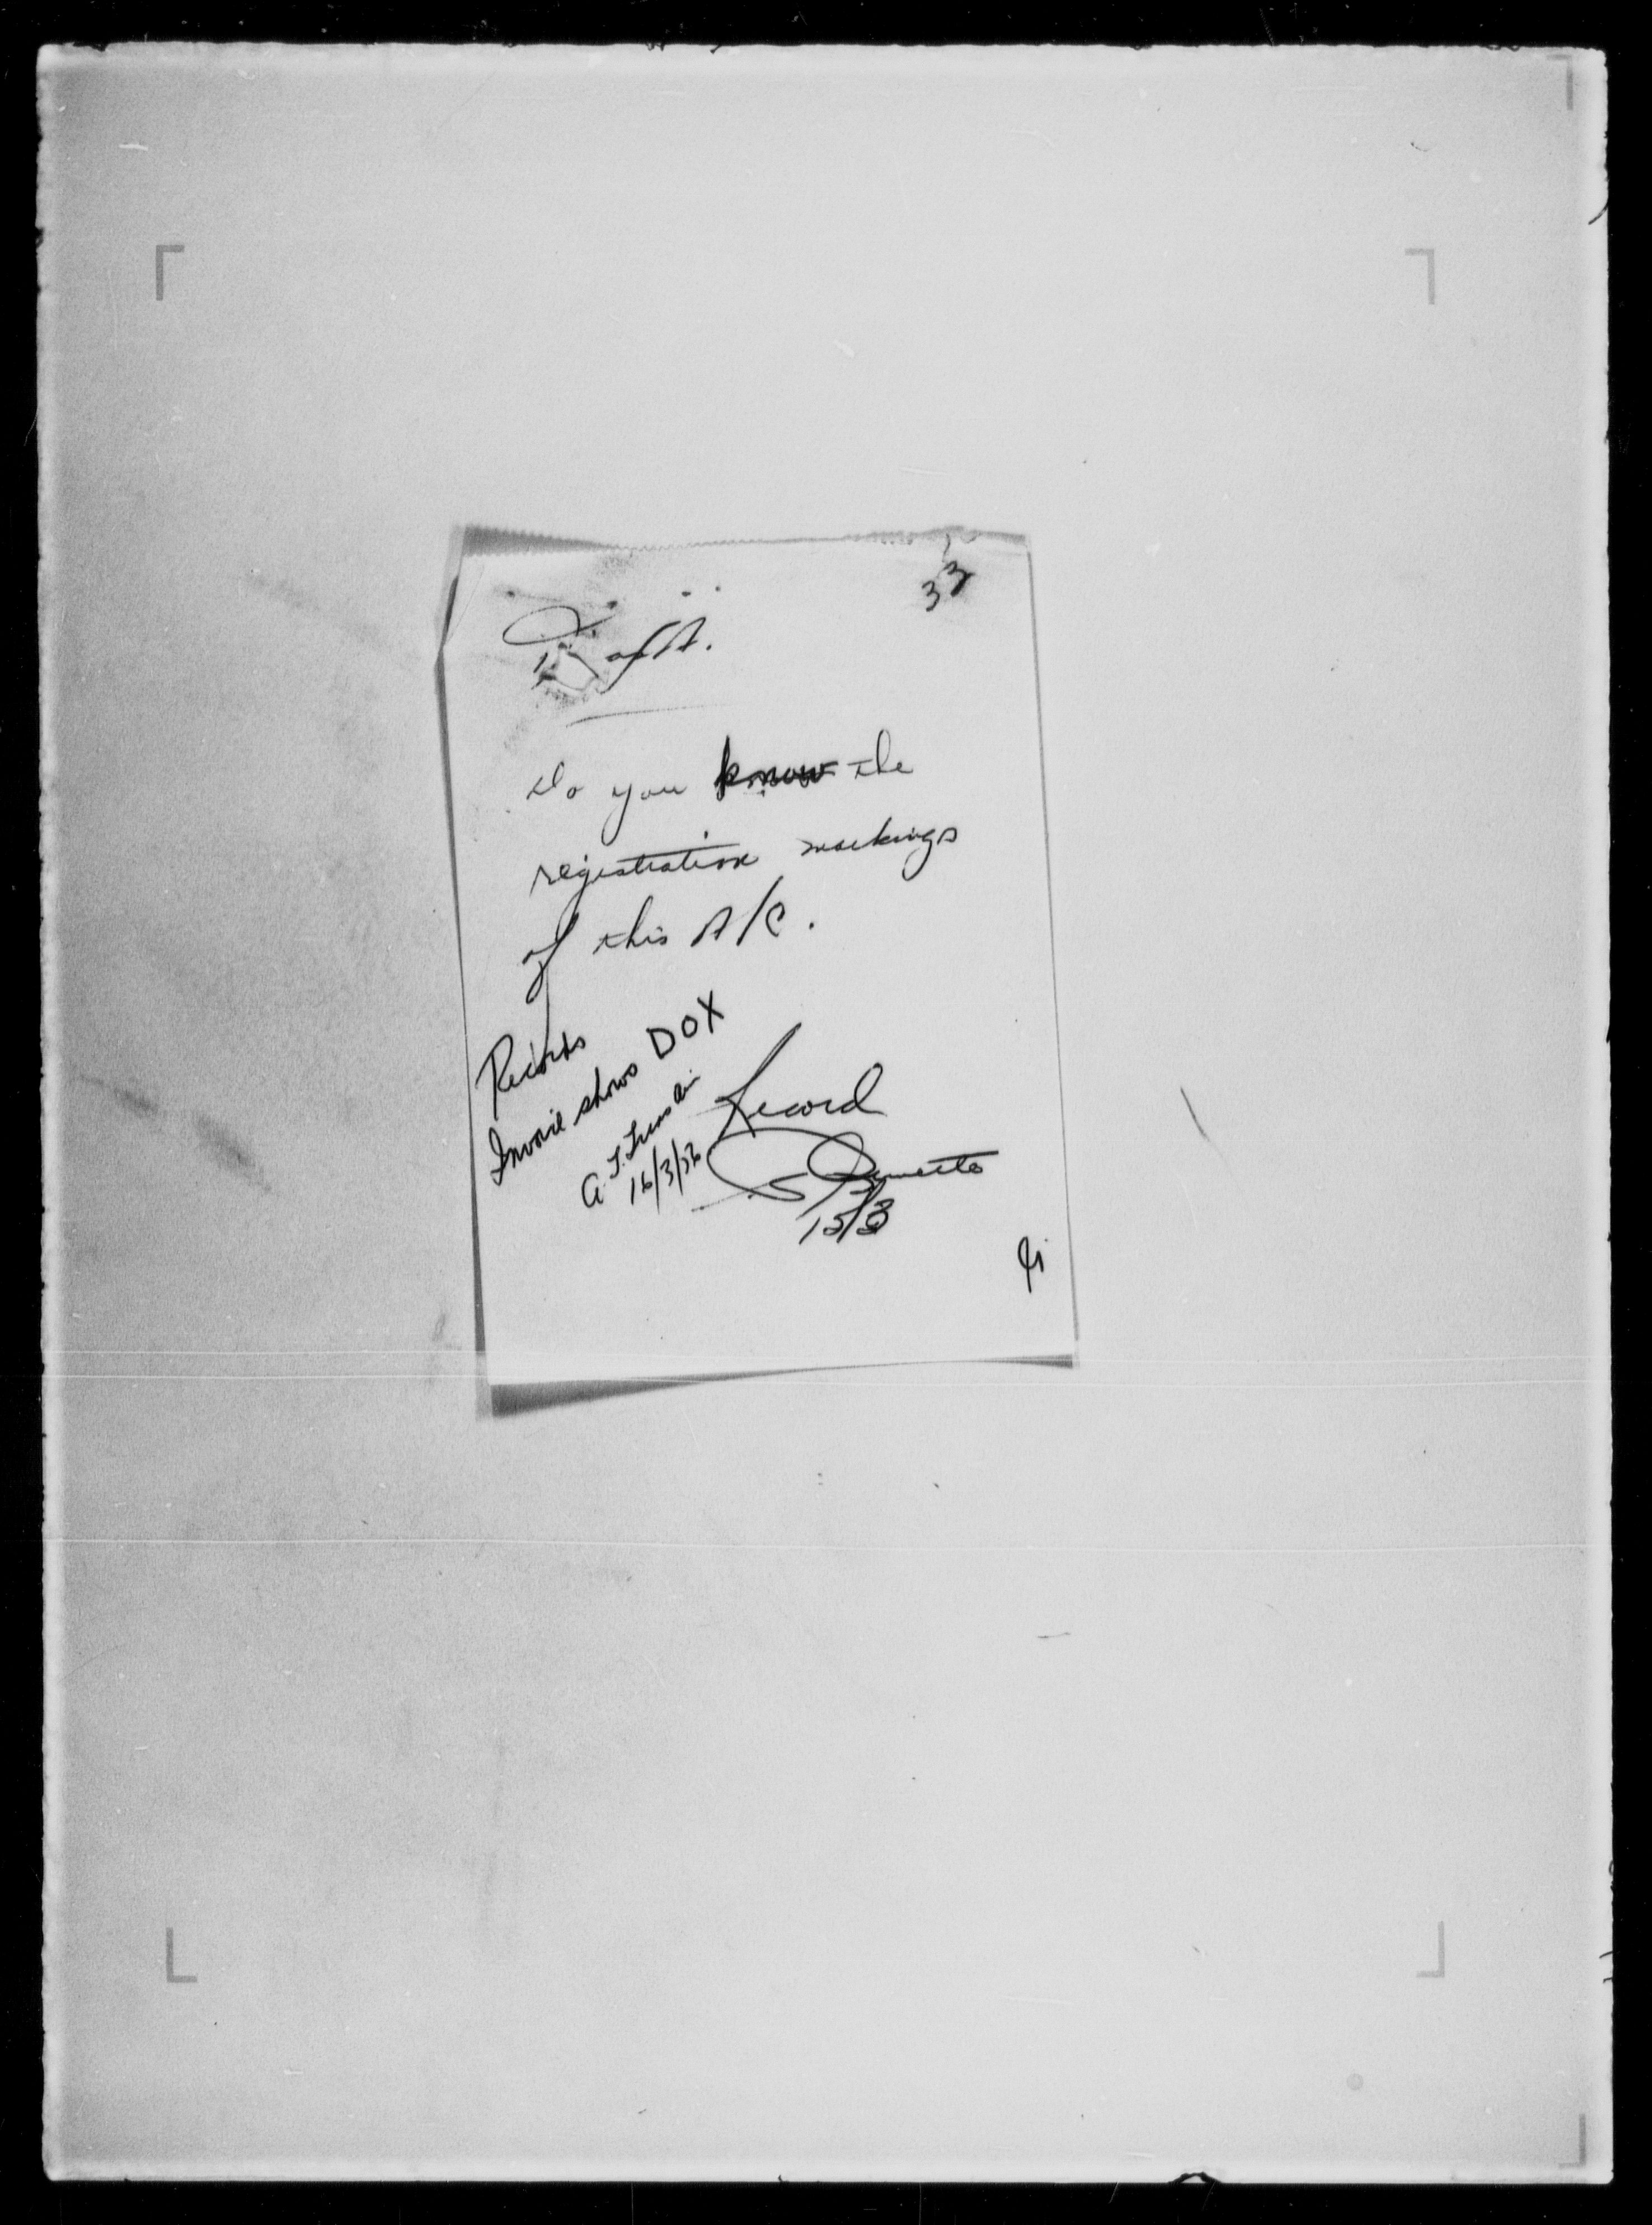 33
Do you know the
registration markings
of this A/C.
Records
Invoice shows DOX
16/3/36
Record
15/3